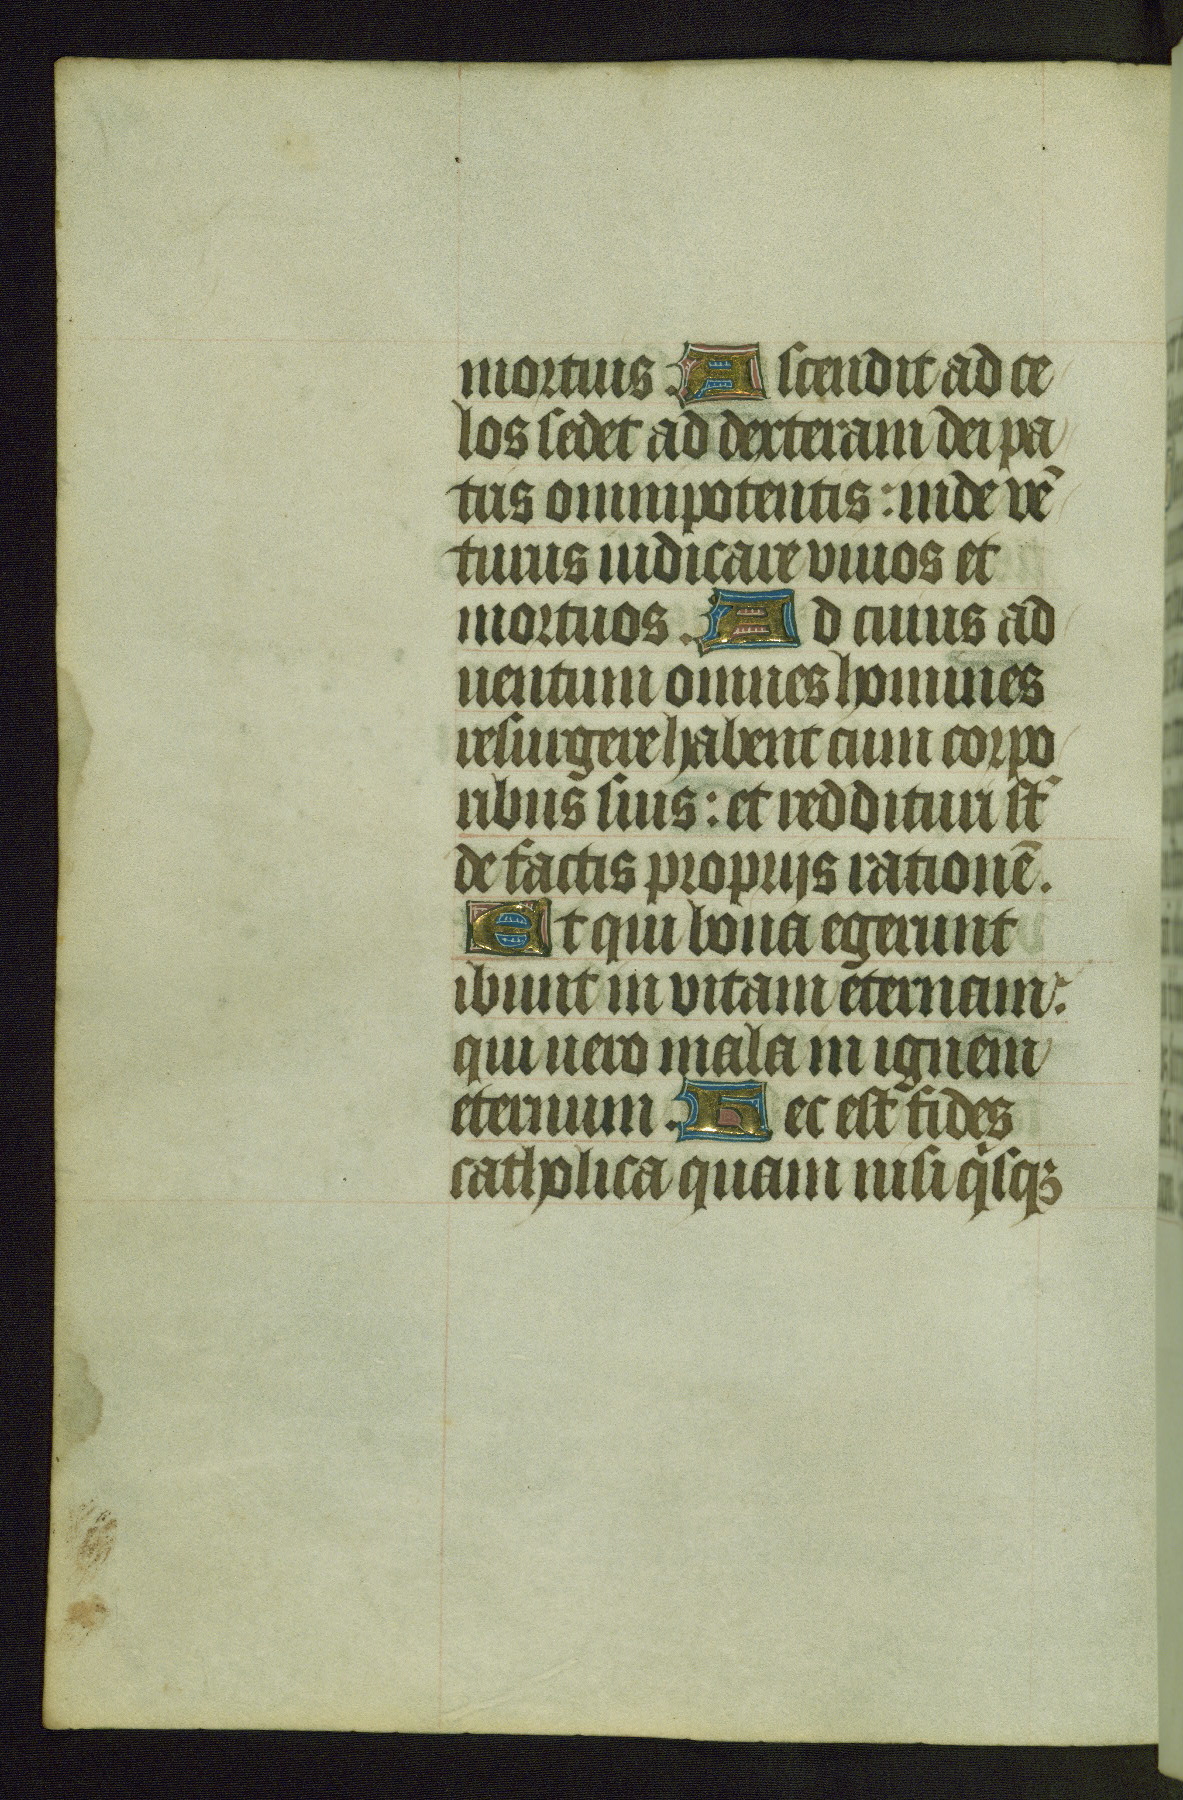 mortuis. Ascendit ad ce
los sedet ad dexteram dei pa
tris omnipotentis: inde vē
turus iudicare viuos et
mortuos. Ad cuius ad
uentum omnes homines
resurgere habent cum corpo
ribus suis: et reddituri st̄
de factis proprijs rationē.
Et qui bona egerunt
ibunt in vitam eternam:
qui uero mala in ignem
eternum. Hec est fides
catholica quam nisi qⁱsqꝫ